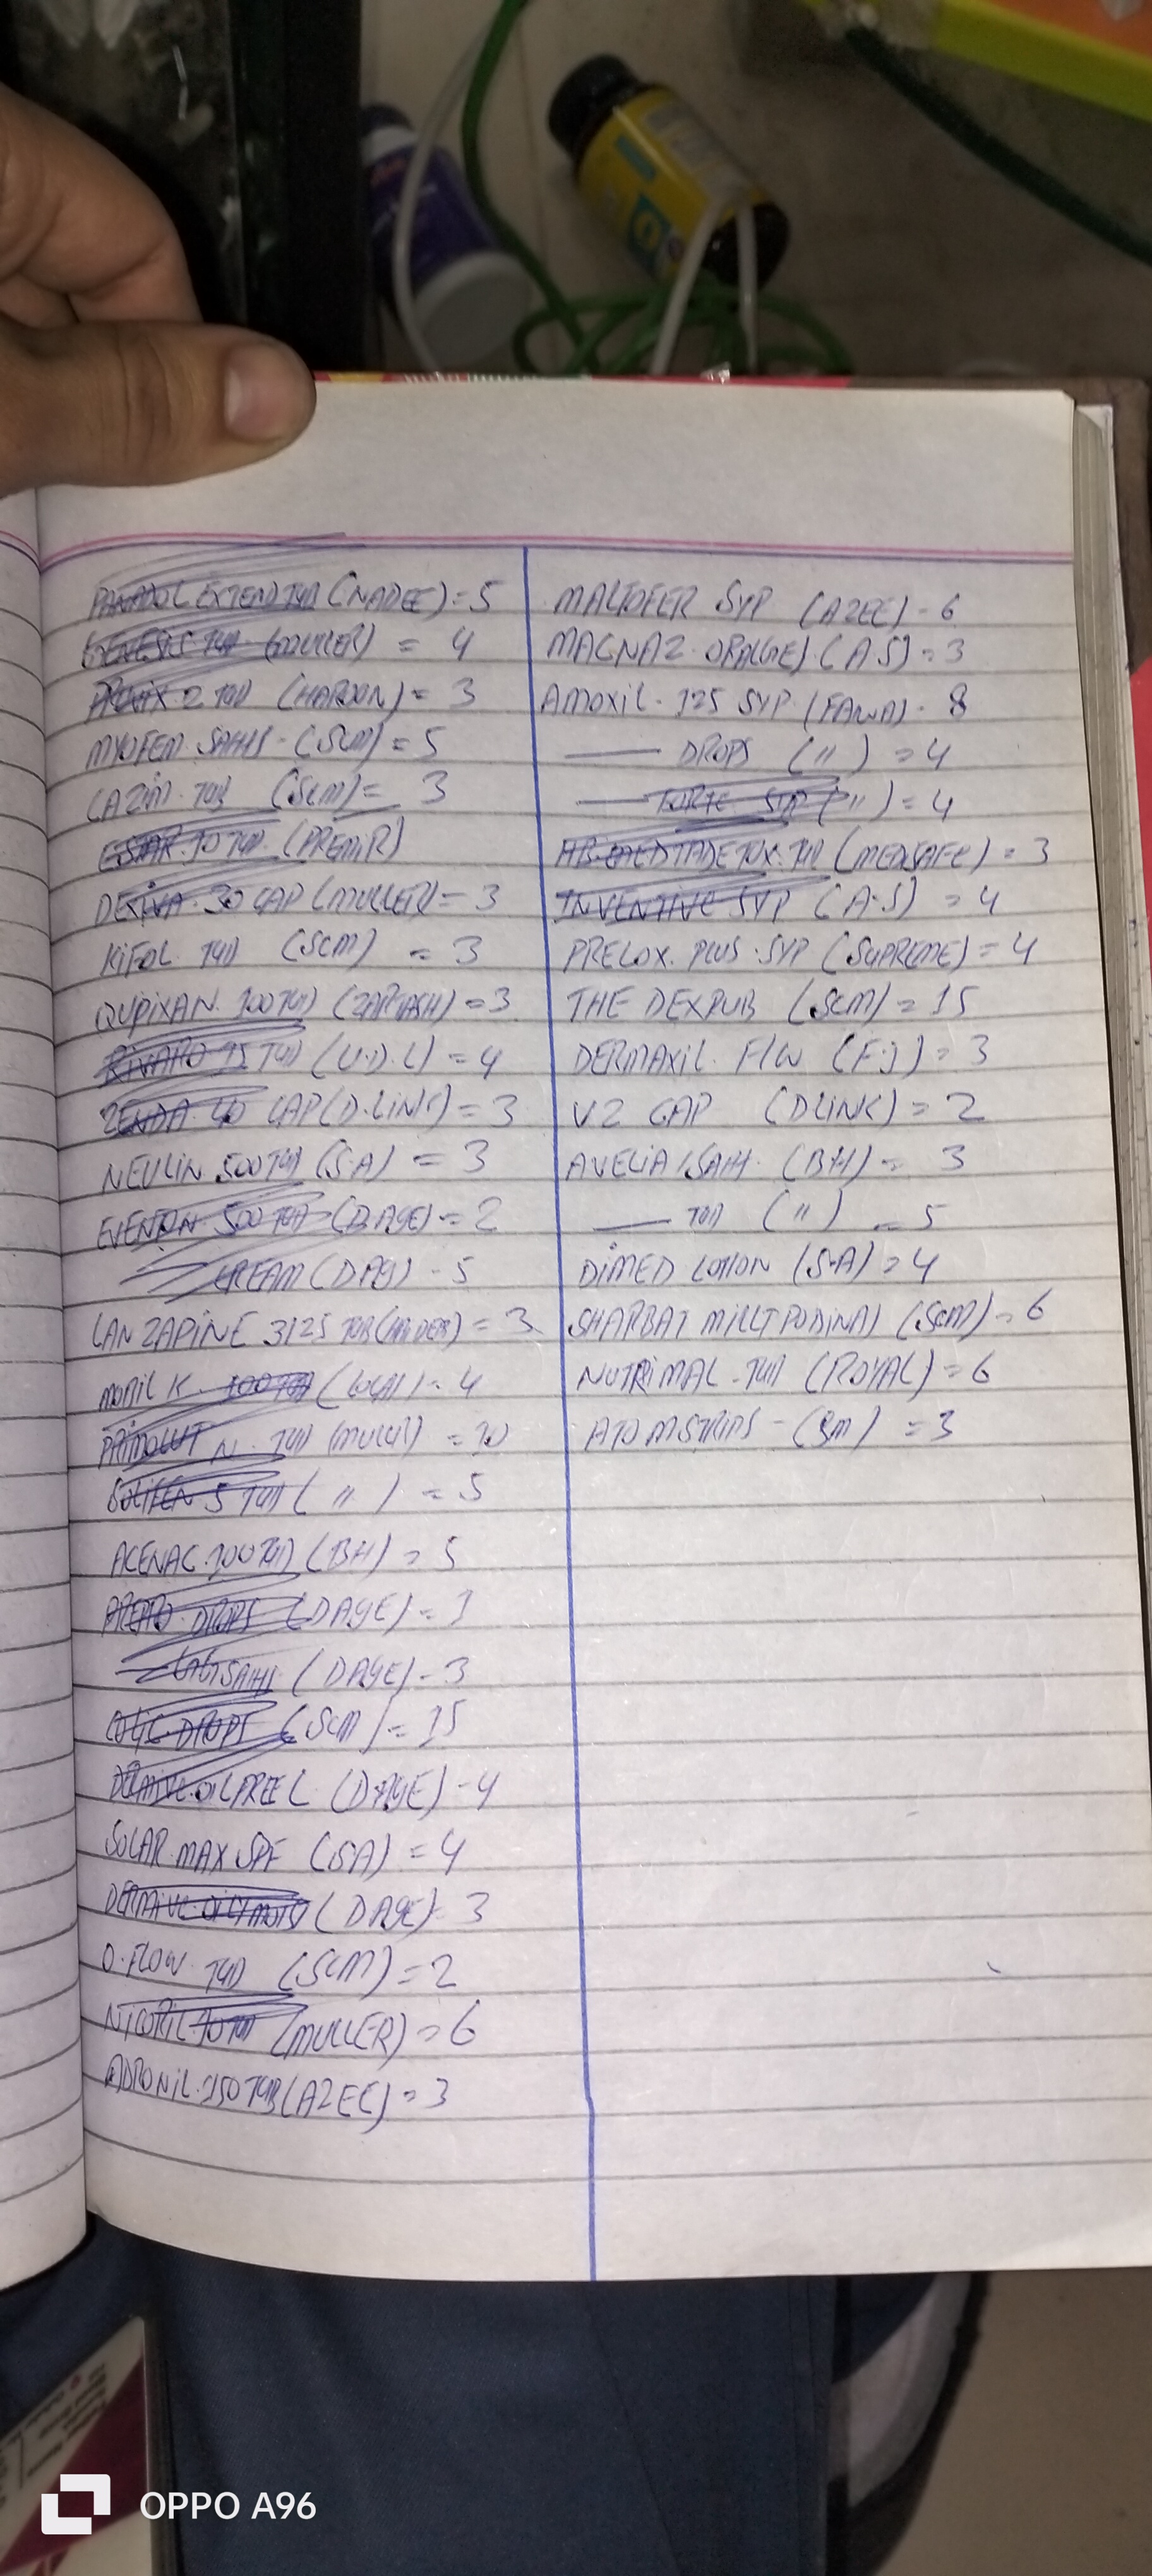 PANADOL EXTEND TAB (NADEE) = 5
GENESIS TAB (MULLER) = 4
PREVIX 2 TAB (HAROON) = 3
MYOFEN SAHIS - (SCM) = 5
CAZIM TAB (SCM) = 3
ESTAR 10 TAB (PREMIR)
DEXIVA 30 CAP (MULLER) = 3
KIFOL TAB (SCM) = 3
QUPIXAN 100 TAB (ZARTASH) = 3
RIVARO 15 TAB (U.D.L) = 4
ZENDA 40 CAP (D.LINK) = 3
NEULIN 500 TAB (S.A) = 3
EVENTON 500 TAB (DAYE) = 2
CREAM (DAY) - 5
LANZAPINE 3125 TAB = 3
MONIL K 100 TAB = 4
PRIMOLUT N. TAB (MULLR) = 10
SOLIFEN 5 TAB ( " ) = 5
ACENAC 100 TAB (BH) = 5
DROPS (DAYE) = 1
(DAYE) - 3
COLIC DROPS (SCM) = 15
DERMIVE OIL FREE L (DAYE) - 4
SOLAR MAX SPF (SA) = 4
DERMIVE OILY (DAYE) 3
O.FLOW TAB (SCM) = 2
NICORIL 10 TAB (MULLER) = 6
ADRONIL 150 TAB (AZEE) = 3
MALTOFER SYP (AZEE) - 6
MAGNAZ (A.S) = 3
AMOXIL 125 SYP - 8
—— DROPS ( " ) = 4
—— FORTE SYP ( " ) = 4
TAB (MEDSAFE) = 3
INVENTIVE SYP (A.S) = 4
PRELOX PLUS SYP (SUPREME) = 4
THE DEXPUB (SCM) = 15
DERMAXIL F/W (F.J) = 3
V2 CAP (DLINK) = 2
AVELIA SAHH (BH) = 3
—— TAB ( " ) = 5
DIMED LOTION (S.A) = 4
SHARBAT (SCM) = 6
NUTRIMAL TAB (ROYAL) = 6
ATOM STRIPS - (BM) = 3
OPPO A96